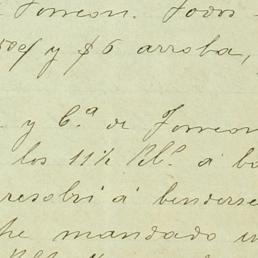 Torreon. Todos
50 c/ y $6 arroba,
y C.ª de Torreon
los 11½ Bls. á bo
resolví á venderse
he mandado u